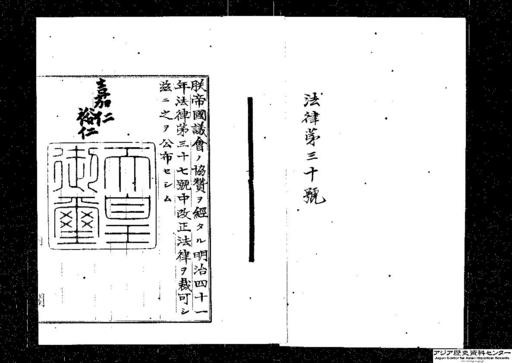 法律第三十號
朕帝國議會ノ協贊ヲ經タル明治四十一
年法律第三十七號中改正法律ヲ裁可シ
茲ニ之ヲ公布セシム
嘉仁
裕仁
天皇
御璽
アジア歴史資料センター
Japan Center for Asian Historical Records